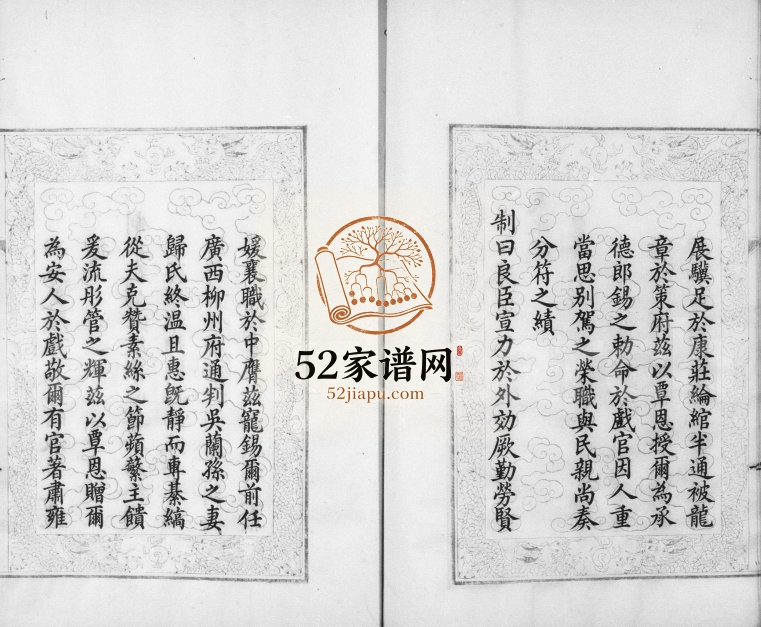 展驥足於康莊綸綰半通被龍
章於策府茲以覃恩授爾為承
德郎錫之勅命於戲官因人重
當思別駕之榮職與民親尚奏
分符之績
制曰良臣宣力於外効厥勤勞賢
媛襄職於中膺茲寵錫爾前任
廣西柳州府通判吳蘭孫之妻
歸氏終溫且惠旣靜而專綦縞
從夫克贊素絲之節蘋蘩主饋
爰流彤管之輝茲以覃恩贈爾
為安人於戲敬爾有官著肅雍
52家谱网
52jiapu.com